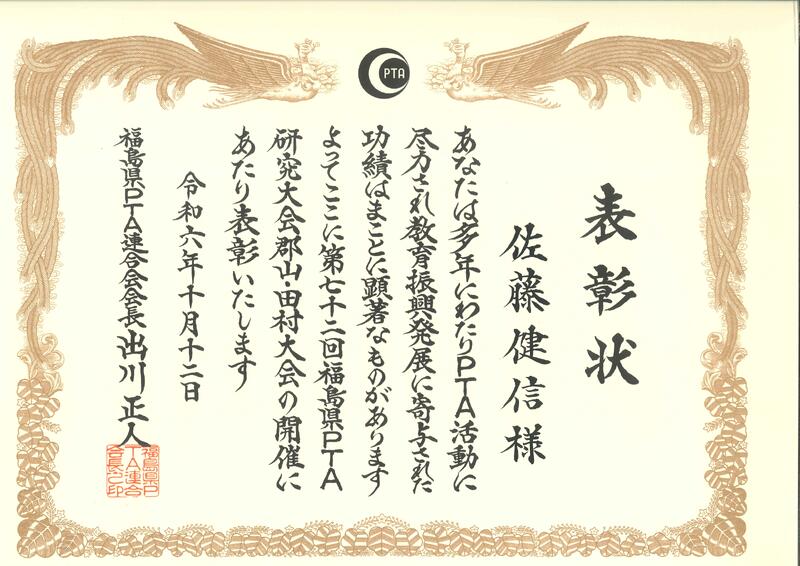 PTA
表彰状
佐藤健信様
あなたは多年にわたりPTA活動に
尽力され教育振興発展に寄与された
功績はまことに顕著なものがあります
よってここに第七十二回福島県PTA
研究大会郡山・田村大会の開催に
あたり表彰いたします
令和六年十月十二日
福島県PTA連合会会長 出川正人
福島県P
TA連合
会長之印